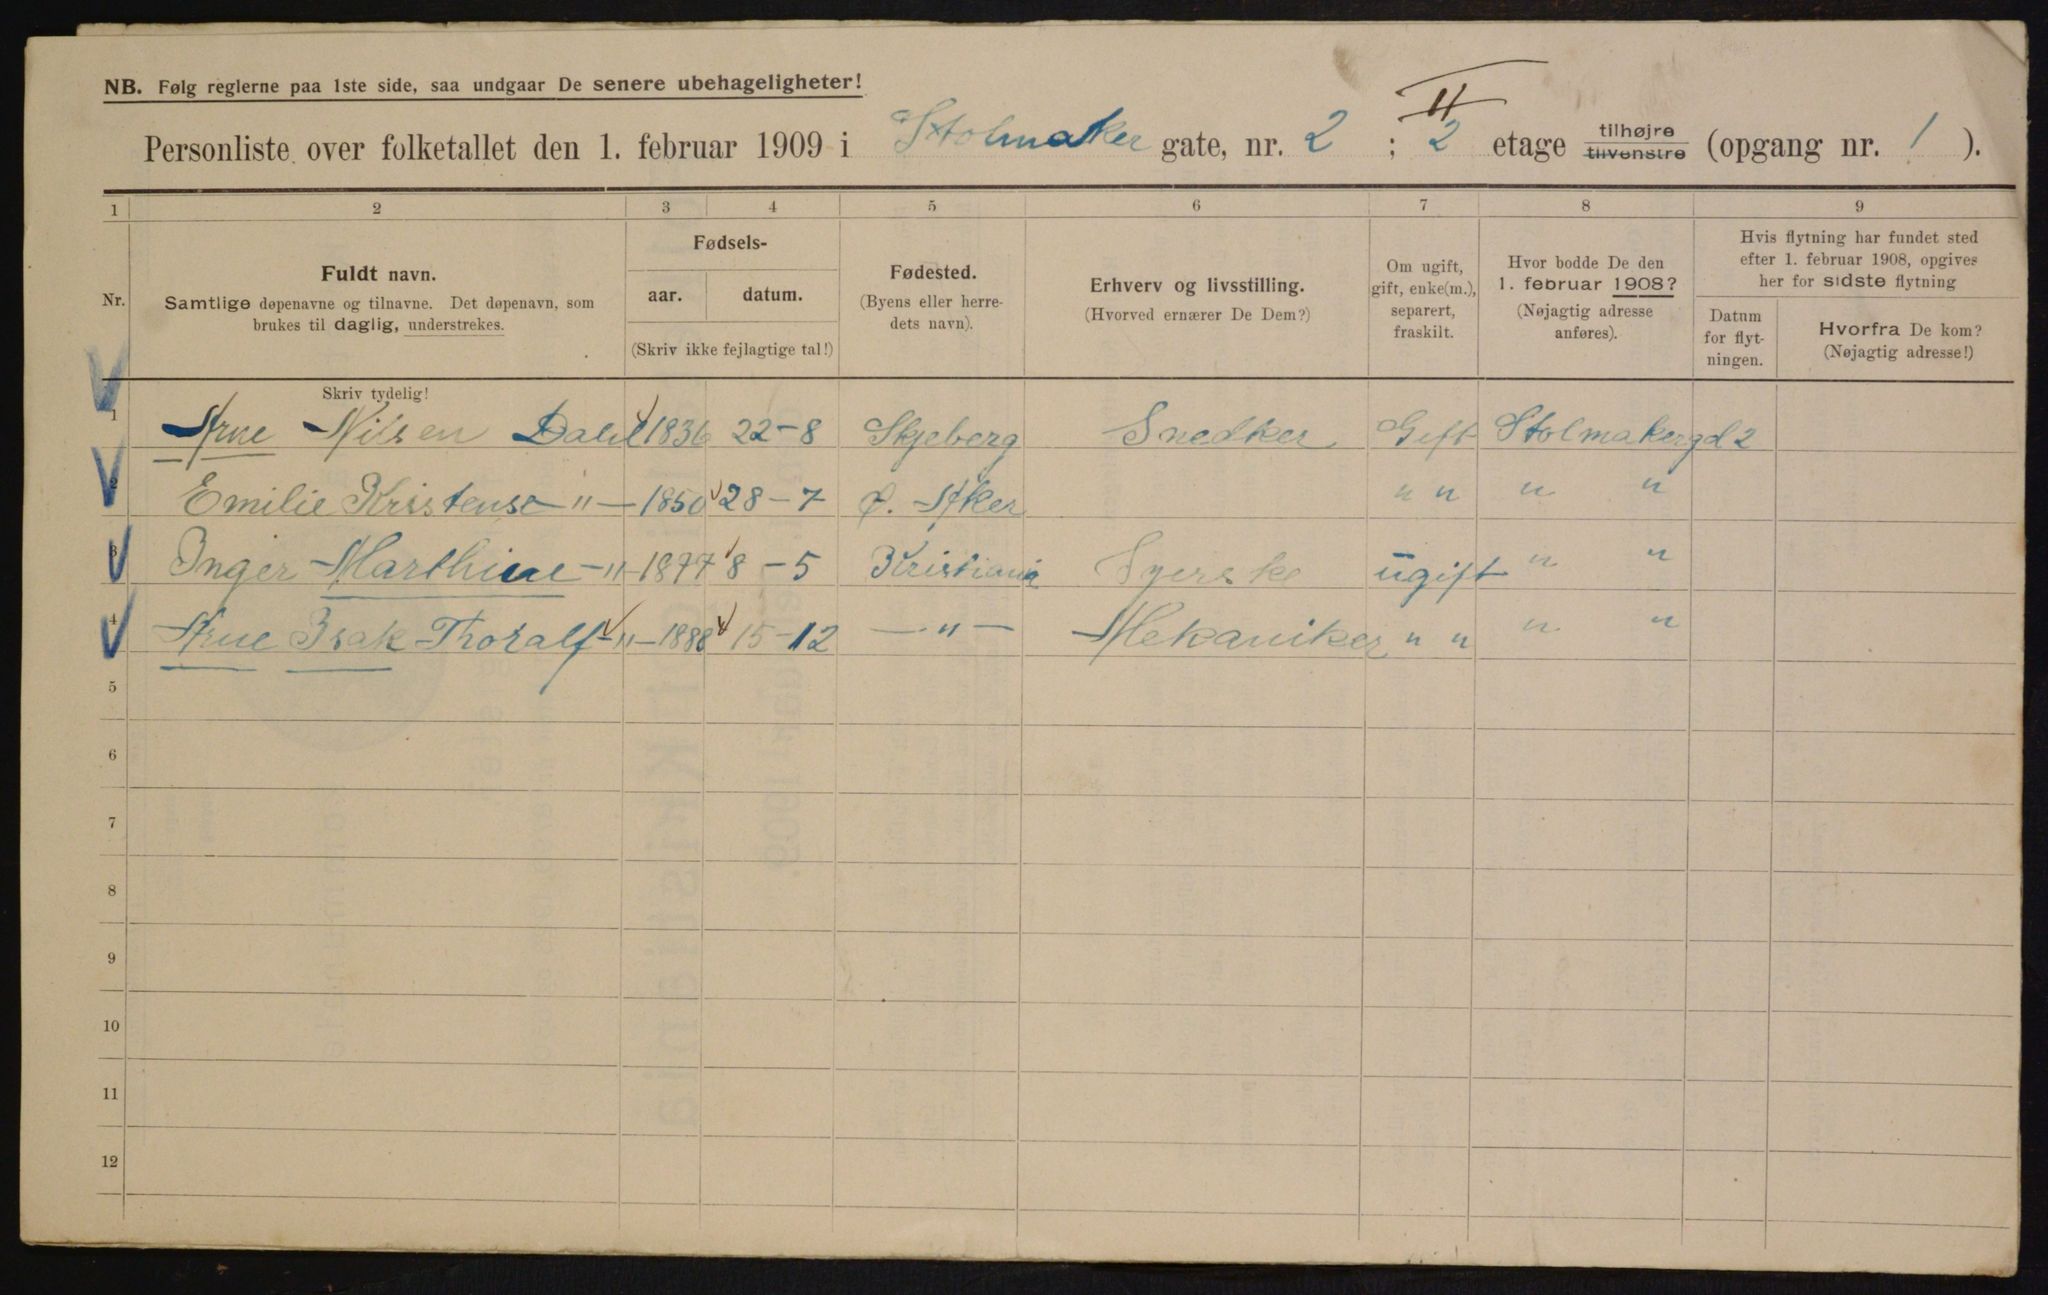 NB. Følg reglerne paa 1ste side, saa undgaar De senere ubehageligheter!
Personliste over folketallet den 1. februar 1909 i Stolmaker gate, nr. 2 ; 2 II etage tilhøjre tilvenstre (opgang nr. 1 ).
1 2 3 4 5 6 7 8 9
Nr.
Fuldt navn.
Samtlige døpenavne og tilnavne. Det døpenavn, som
brukes til daglig, understrekes.
Fødsels-
aar. datum.
(Skriv ikke fejlagtige tal!)
Fødested.
(Byens eller herre-
dets navn).
Erhverv og livsstilling.
(Hvorved ernærer De Dem?)
Om ugift,
gift, enke(m.),
separert,
fraskilt.
Hvor bodde De den
1. februar 1908?
(Nøjagtig adresse
anføres).
Hvis flytning har fundet sted
efter 1. februar 1908, opgives
her for sidste flytning
Datum
for flyt-
ningen.
Hvorfra De kom?
(Nøjagtig adresse!)
Skriv tydelig!
1 Arne Nilsen Dahl 1836 22-8 Skjeberg Snedker Gift Stolmakergd 2
2 Emilie Kristense -"- 1850 28-7 Ø. Aker " " " "
3 Inger Marthine -"- 1877 8-5 Kristiania Syerske ugift " "
4 Arne Isak Thoralf -"- 1888 15-12 -"- Mekaniker " " " "
5
6
7
8
9
10
11
12